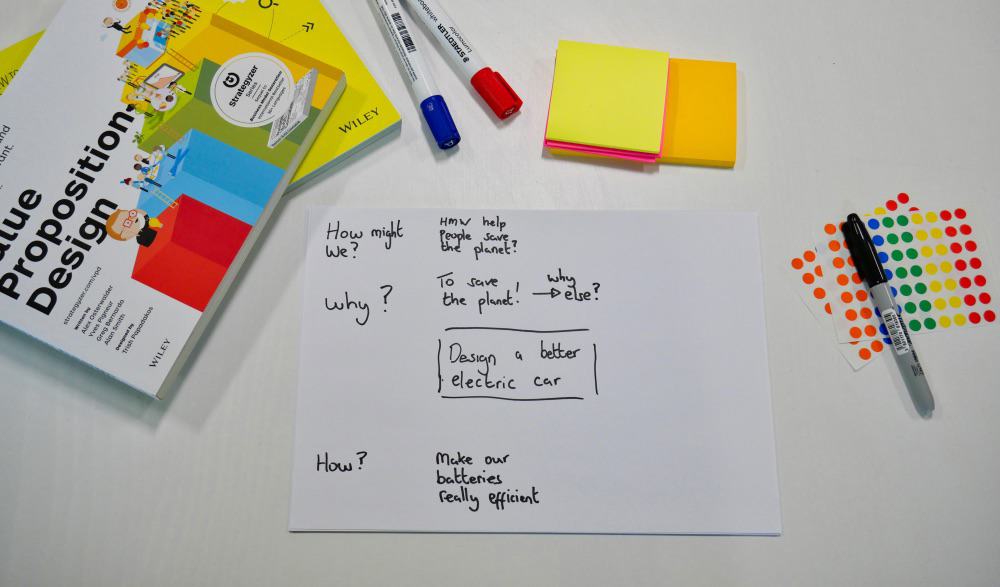 and
unt.
alue
Proposition
Design
strategyzer.com/vpd
Written by
Alex Osterwalder
Yves Pigneur
Greg Bernarda
Alan Smith
Designed by
Trish Papadakos
WILEY
Strategyzer
Series
WILEY
STAEDTLER
Lumocolor whiteboard
How might
We?
HMW help
People save
the planet?
Why?
To save
the planet!
why
else?
Design a better
electric car
How?
Make our
batteries
really efficient